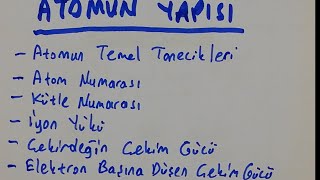 ATOMUN YAPISI
- Atomun Temel Tanecikleri
- Atom Numarası
- Kütle Numarası
- İyon Yükü
- Çekirdeğin Çekim Gücü
- Elektron Başına Düşen Çekim Gücü